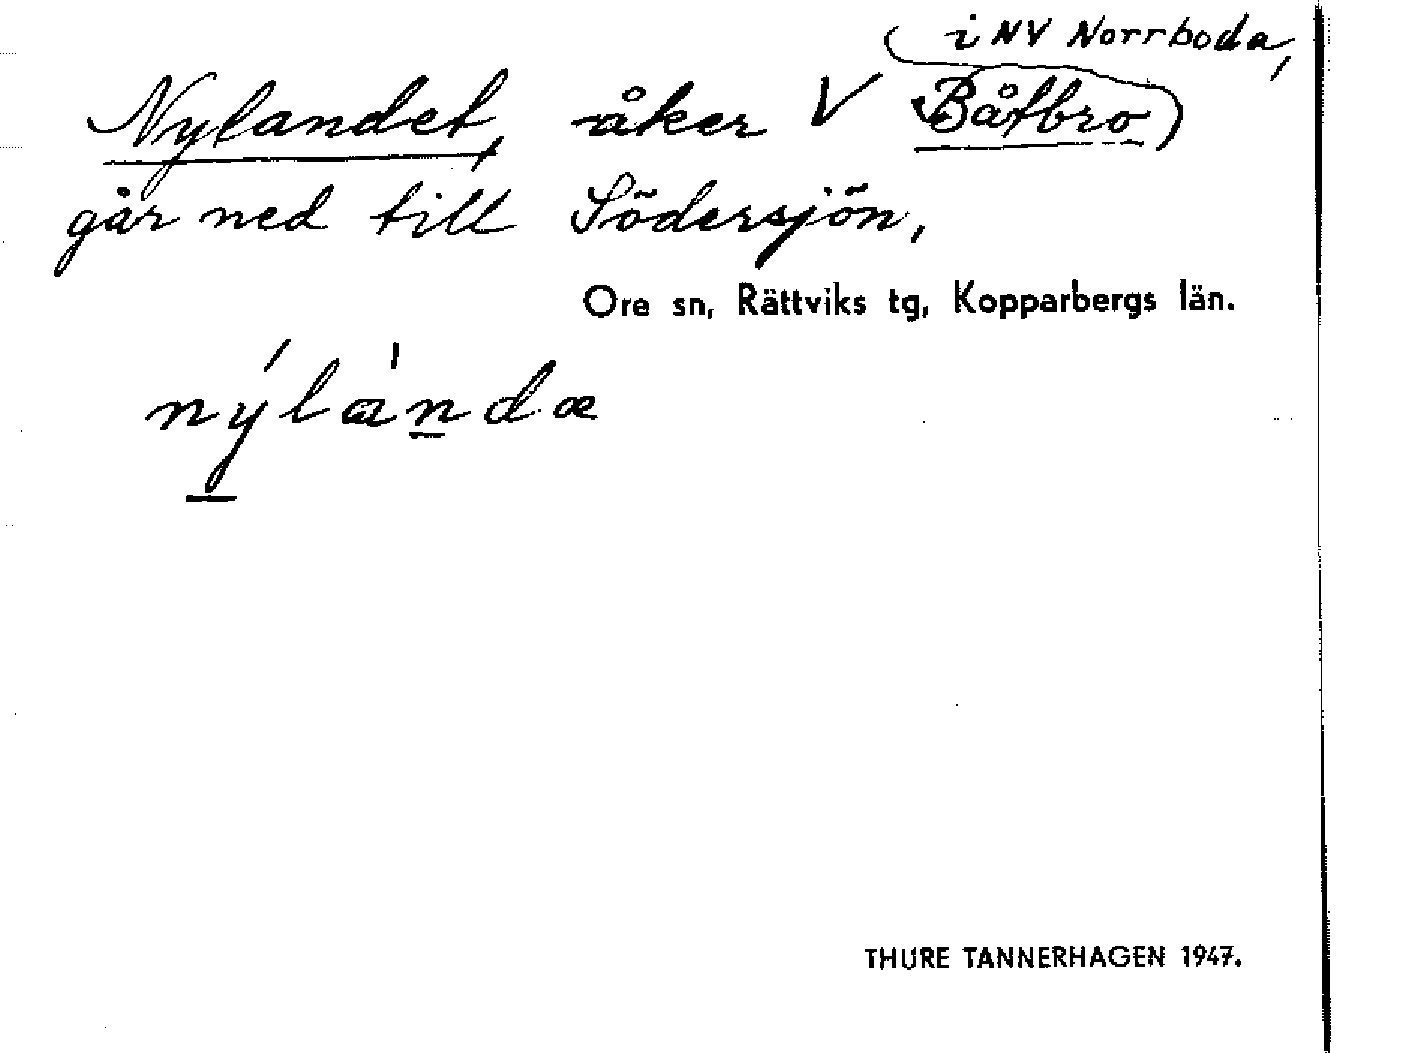 i NV Norrboda,
Nylandet, åker V Båtbro
går ned till Södersjön,
Ore sn, Rättviks tg, Kopparbergs län.
nýlàndæ
THURE TANNERHAGEN 1947.